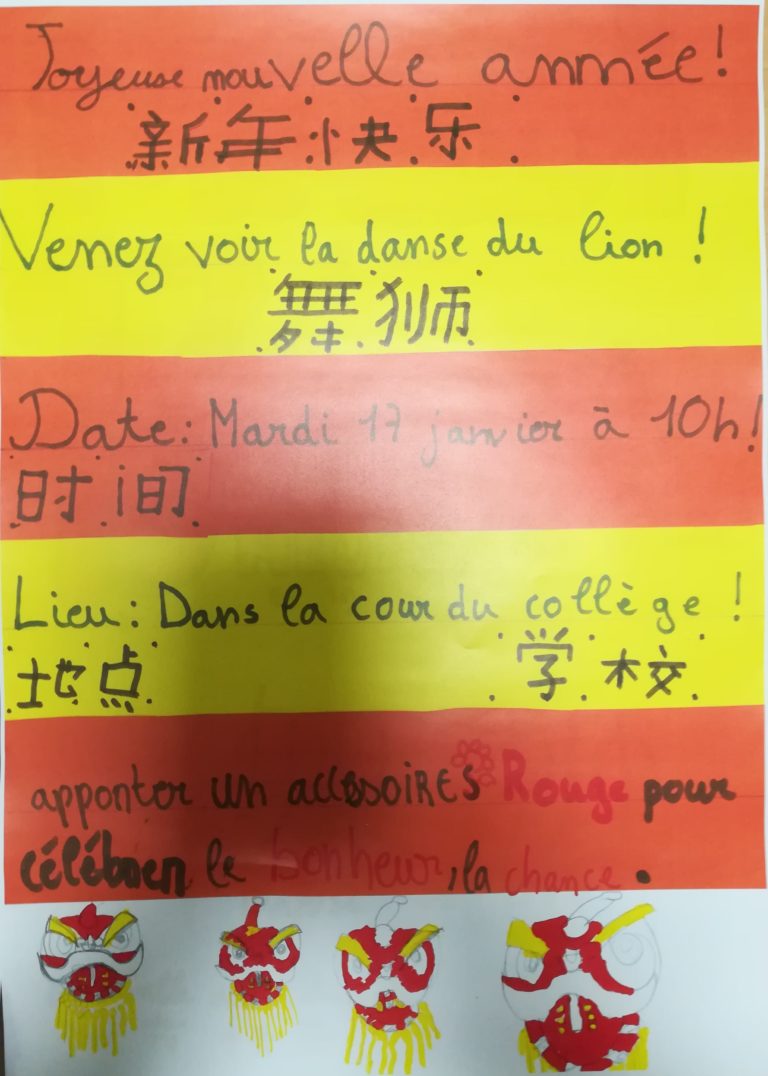 Joyeuse nouvelle année!
新年快乐
Venez voir la danse du lion !
舞狮
Date: Mardi 17 janvier à 10h!
时间
Lieu: Dans la cour du collège !
地点 学校
apporter un accesoires Rouge pour
célébrer le bonheur, la chance.